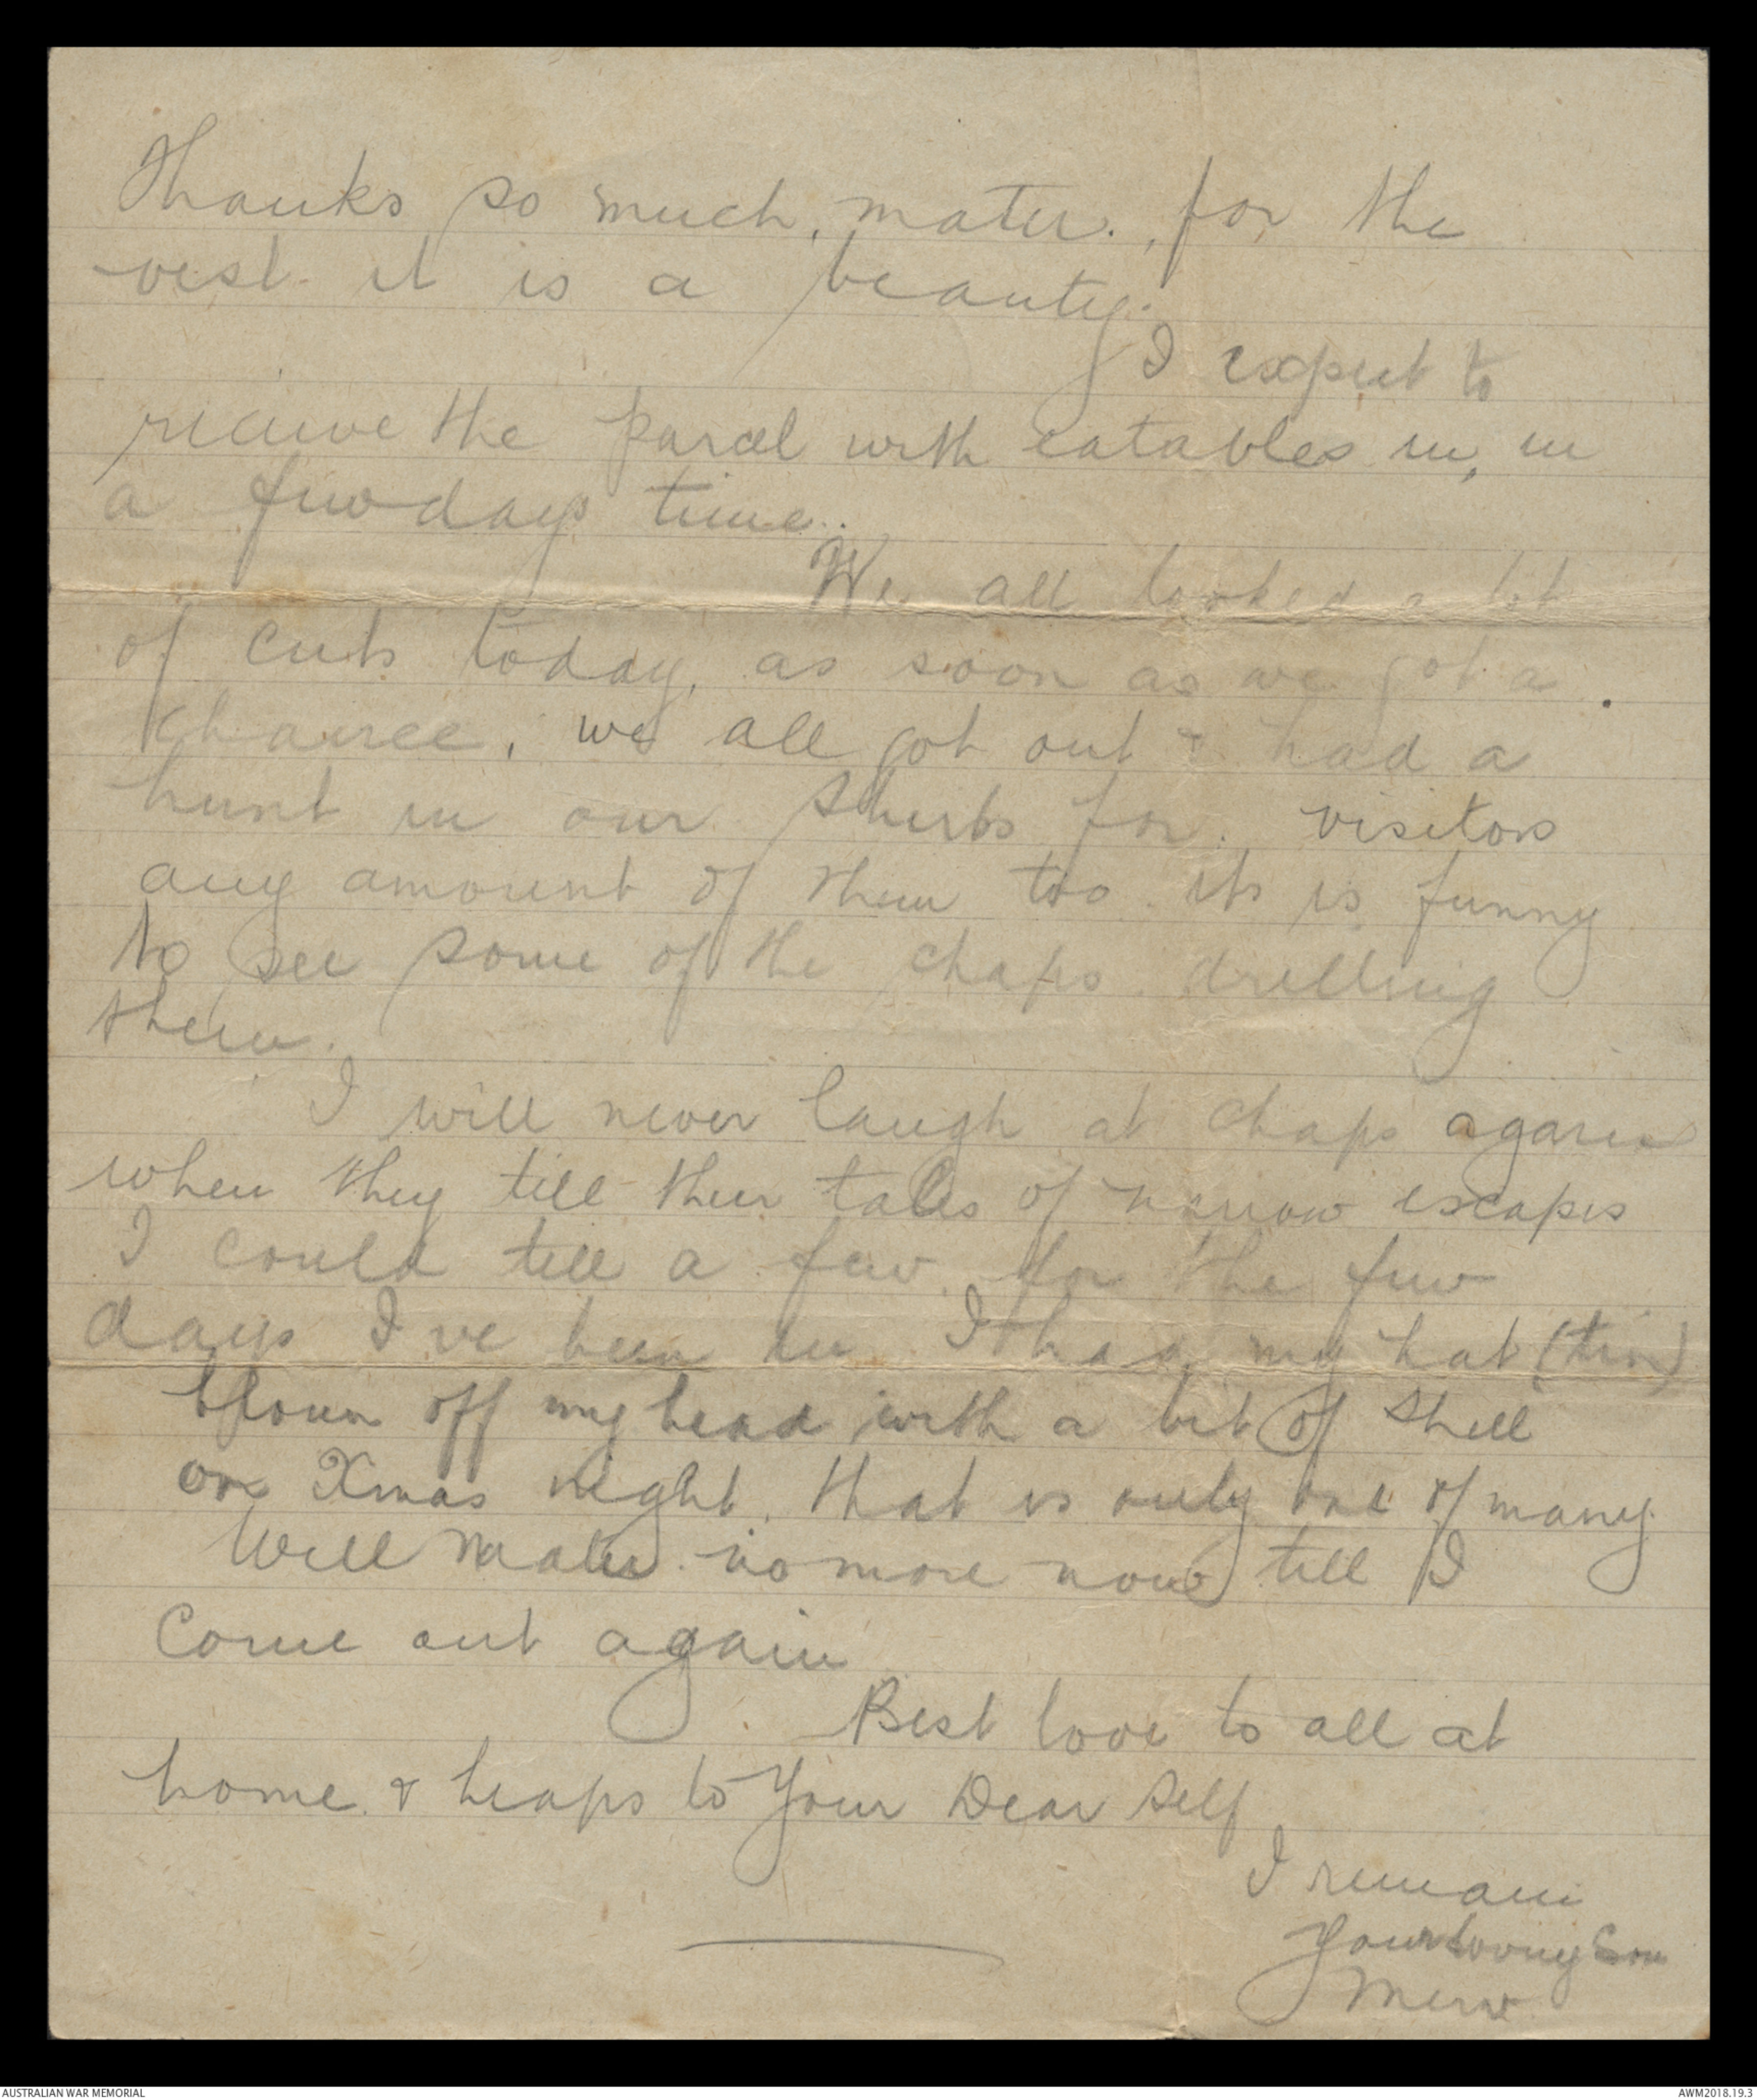 Thanks so much, mater., for the
vest. it is a beauty.
I expect to
receive the parcel with eatables in, in
a few days time.
We all looked a lot
of cuts today, as soon as we got a
chance, we all got out & had a
hunt in our shirts for. visitors
any amount of them too. its is funny
to see some of the chaps drilling
them.
I will never laugh at chaps again
when they tell their tales of narrow escapes
I could tell a few for the few
days I've been in I had my hat (tin)
blown off my head with a bit of shell
on Xmas night. that is only one of many.
Well Mater. no more now till I
come out again
Best love to all at
home. & heaps to Your Dear Self
I remain
Your loving Son
Merv.
AUSTRALIAN WAR MEMORIAL
AWM2018.19.3